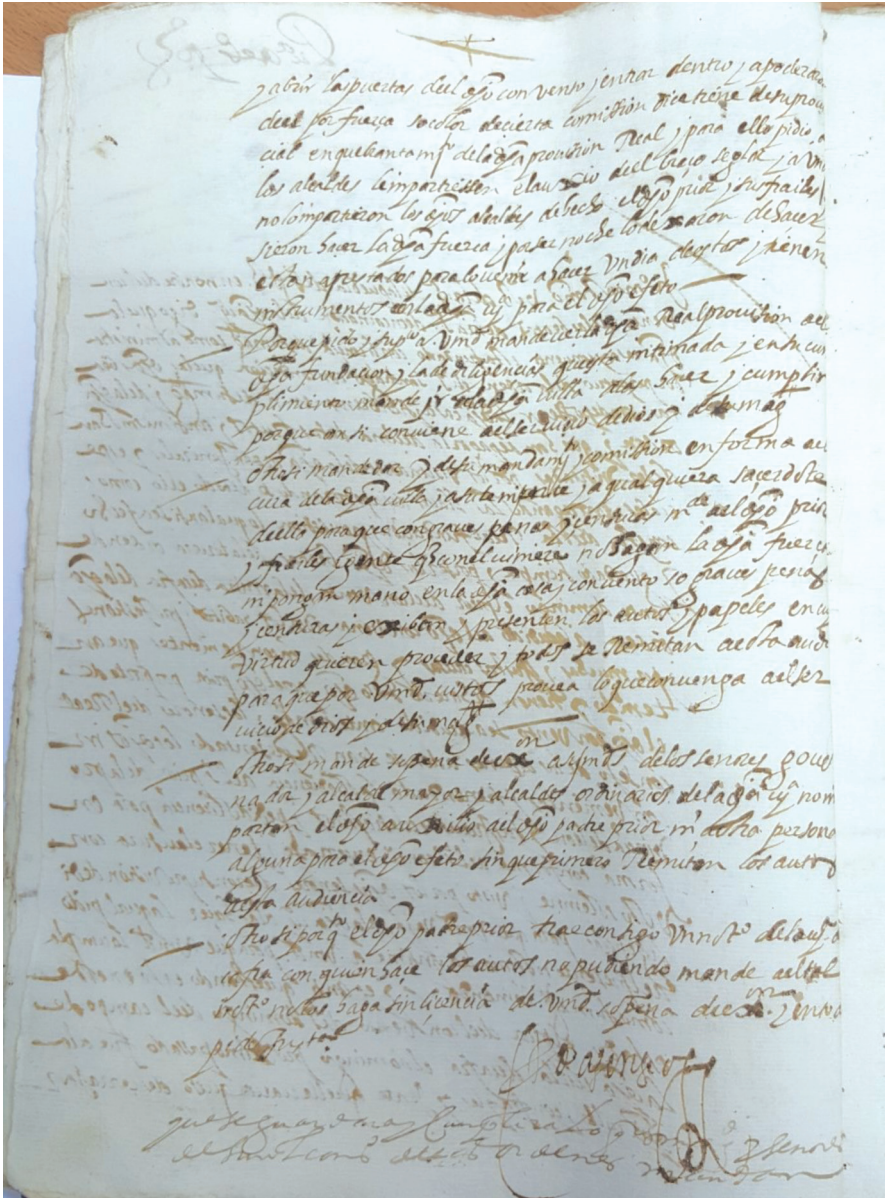 y abrir las puertas del dho convento y entrar dentro y apoderarse
del por fuerça so color de cierta comission dice tiene de su provin
cial en quebrantamyº de la dha provission Real y para ello pidio a
los alcaldes le impartiessen el auxilio del braço seglar y a un
no lo impartieron los dhos alcaldes de hecho el dho prior y sus frailes
sieron hacer la dha fuerça y por ser noche lo dexaron de hacer
estan aprestados para lo venir a hacer un dia destos y tienen
instrumentos en la dha vª para el dho efeto
Porque pido y supcº a Vmd mande ver la dha Real provission del
dha fundacion y las diligencias questa intimada y en su cum
plimiento mande yr a la dha villa a las hacer y cumplir
porque ansi conviene al servicio de dios y de su magd
otrosi mande dar y de su mandamyº y comission en forma al
cura de la dha villa y a su teniente y a qualquiera sacerdote
della para que con graves penas y censuras mde al dho prior
y frailes y gente q con el viniere no hagan la dha fuerça
ni pongan mano en la dha casa y convento so graves penas
y censuras y exiban y presenten los autos y papeles en cu
virtud quieren proceder y todos se Remitan a esta audi
para que por Vmd vistos provea lo que convenga al ser
vicio de dios y de su magd
otrosi mande so pena de exon a sus mds de los señores gover
nador y alcalde mayor y alcaldes ordinarios de la dha vª no im
partan el dho auxilio al dho padre prior ni a otra persona
alguna para el dho efeto sin que primero Remitan los autos
a esta audiencia
otrosi porq el dho padre prior trae consigo un notº
con quien hace los autos no pudiendo mande al tal
notº no los haga sin licencia de Vmd so pena de exon y en todo
pido justª
que se guarde y cumpla
del Real consº de las ordenes